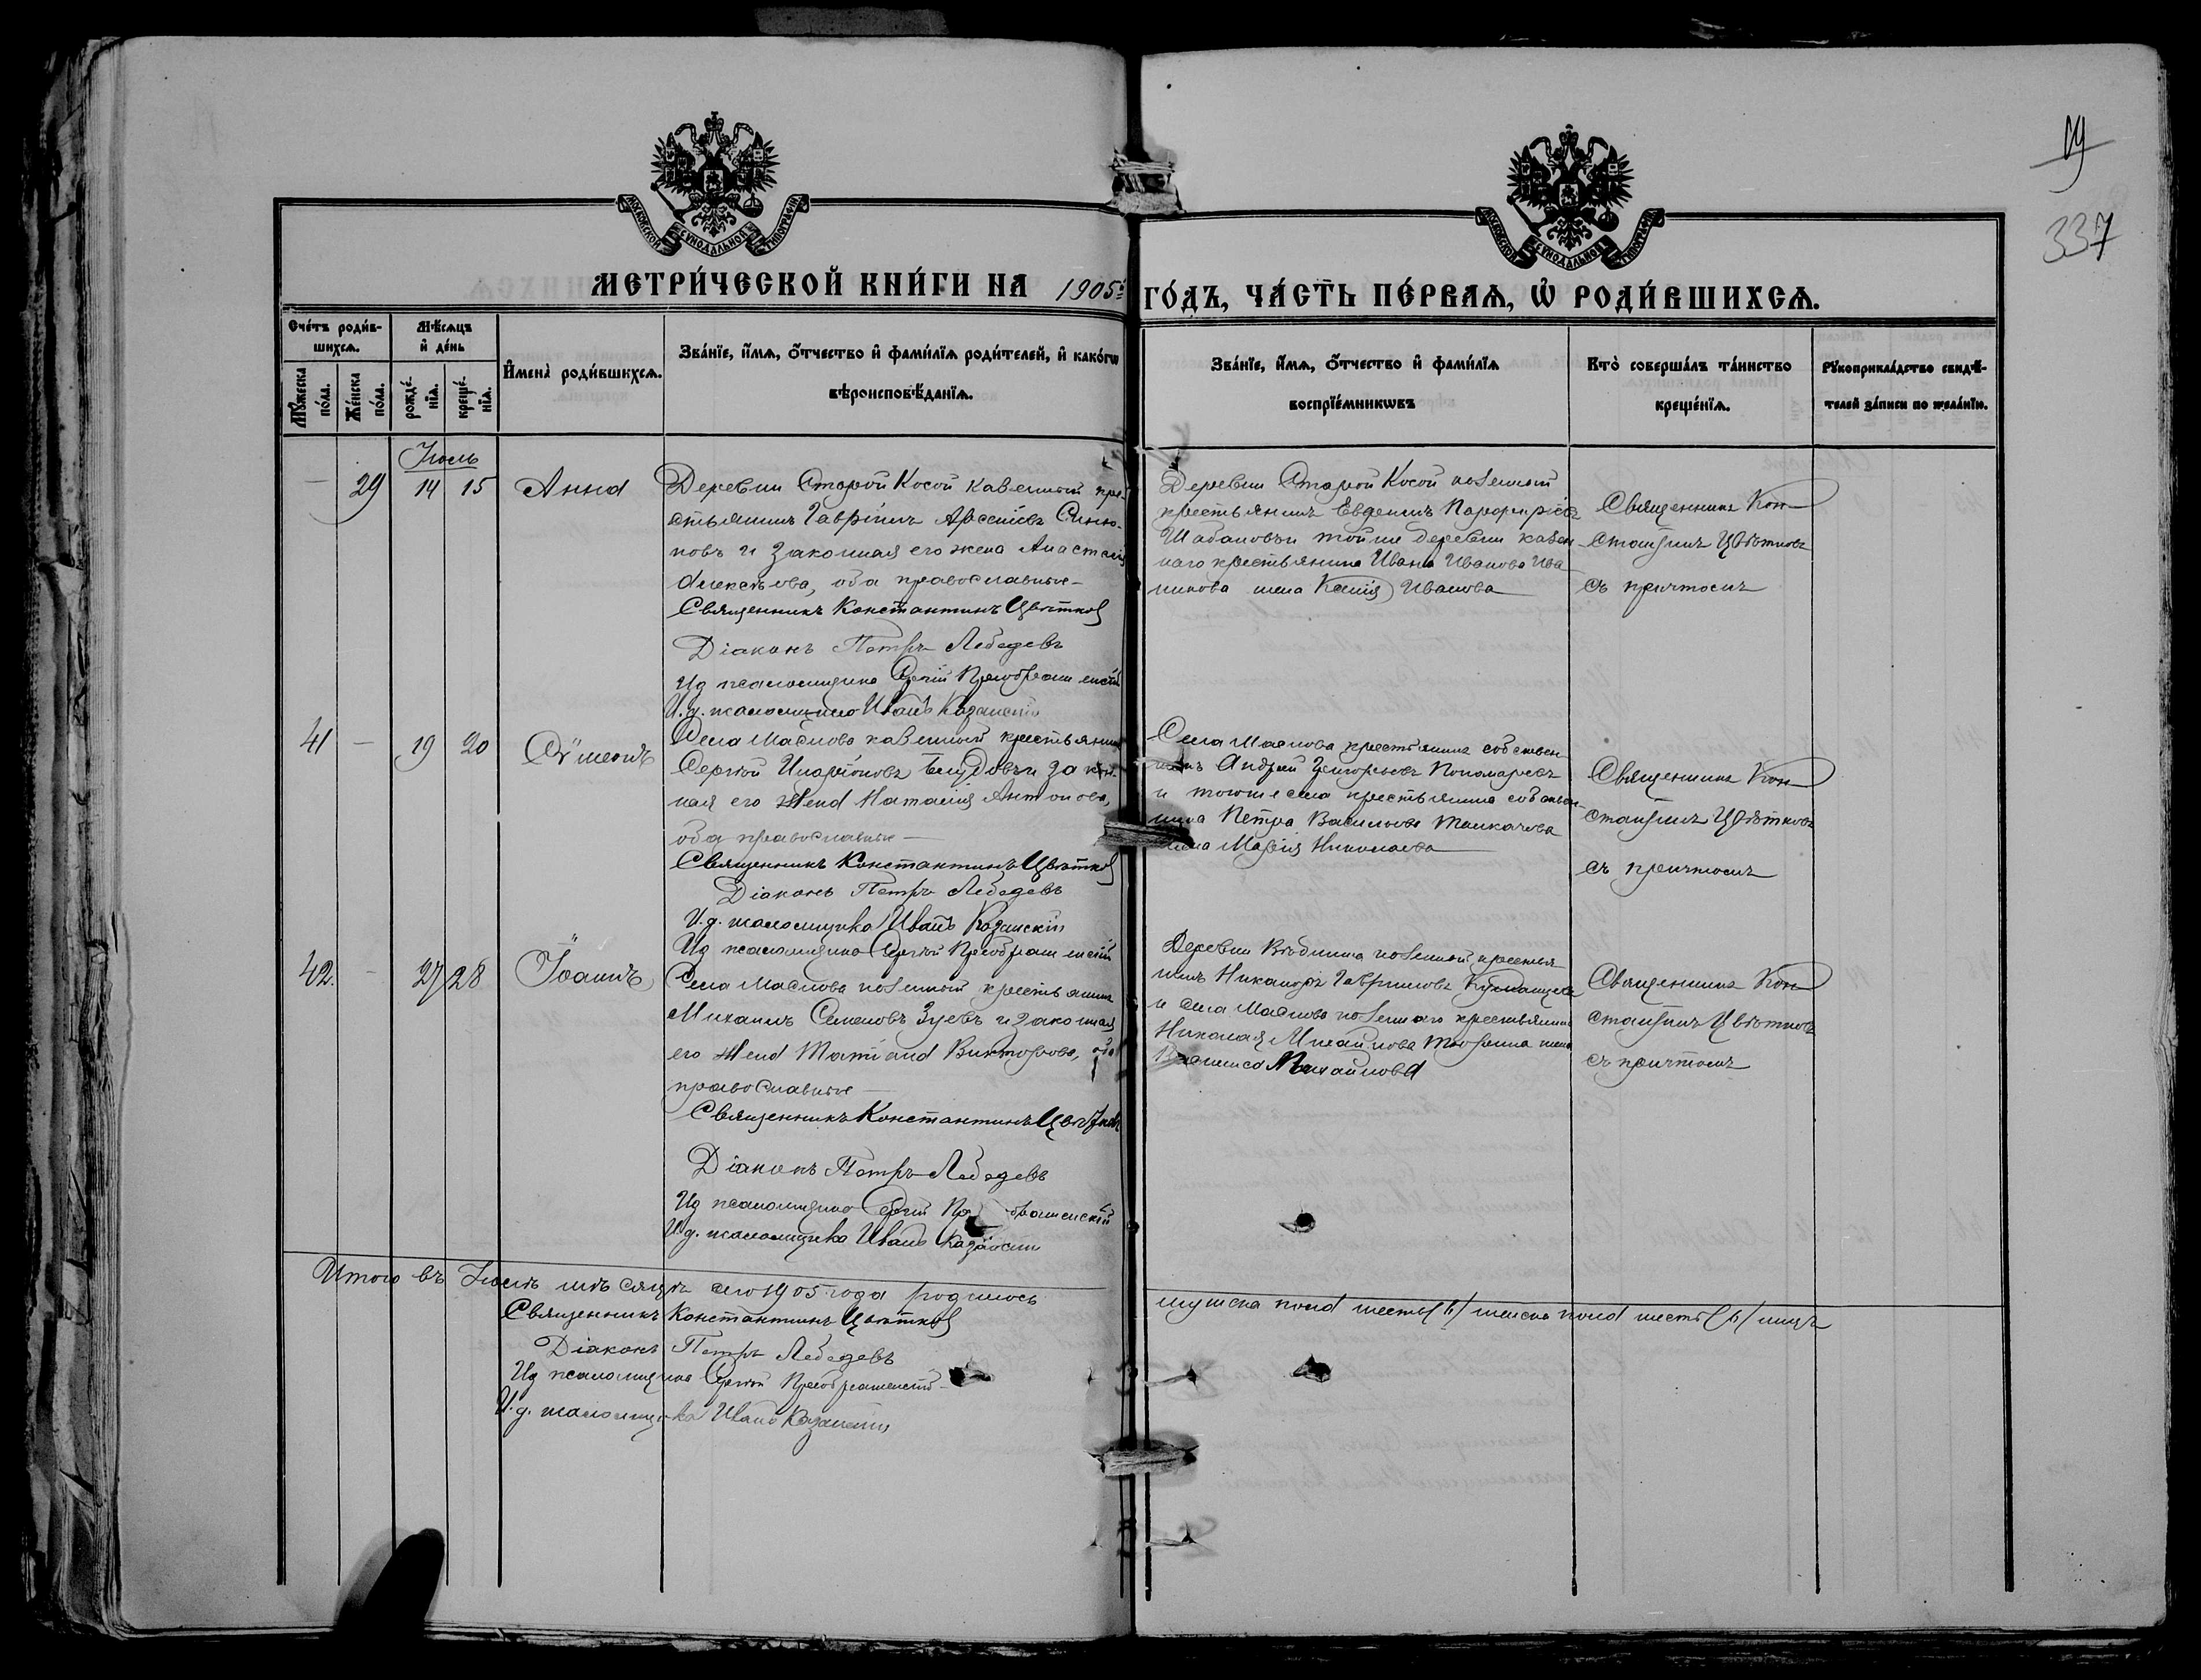 19
337
МОСКОВСКОЙ СѴНОДАЛЬНОЙ ТИПОГРАФІИ
МОСКОВСКОЙ СѴНОДАЛЬНОЙ ТИПОГРАФІИ
МЕТРИ́ЧЕСКОЙ КНИ́ГИ НА 1905й
ГО́ДЪ, ЧА́СТЬ ПЕ́РВАѦ, Ѡ РОДИ́ВШИХСѦ.
Сче́тъ роди́в-
шихсѧ.
Мѣ́сѧцъ
и҆ де́нь
Мꙋ́жеска
по́ла.
Же́нска
по́ла.
рожде́-
нїѧ.
креще́-
нїѧ.
И҆мена̀ роди́вшихсѧ.
Зва́нїе, и҆́мѧ, ѻ҆́тчество и҆ фами́лїѧ роди́телей, и҆ како́гѡ
вѣроисповѣ́данїѧ.
Зва́нїе, и҆́мѧ, ѻ҆́тчество и҆ фами́лїѧ
воспрїе́мникѡвъ
Кто̀ соверша́лъ та́инство
креще́нїѧ.
Рꙋкоприкла́дство свидѣ́-
телей за́писи по жела́нїю.
Іюль
— 29 14 15 Анна
Деревни Старой Косой казенный кре-
стьянинъ Гавріилъ Арсеніевъ
новъ и законная его жена Анастасія
Алексѣева, оба православные—
Священникъ Константинъ Цвѣтковъ
Діаконъ Петръ Лебедевъ
Ид псаломщика Сергій Преображенскій
И.д. псаломщика Иванъ Казанскій
Деревни Старой Косой казенный
крестьянинъ Евдокимъ Порфиріевъ
Шабановъ и той же деревни казен-
наго крестьянина Ивана Иванова
жена Иванова
Священникъ Кон-
стантинъ Цвѣтковъ
съ причтомъ
41 — 19 20 Сѵмеонъ
Села Маслова казенный крестьянинъ
Сергій Иларіоновъ и закон-
ная его жена Наталія Антонова,
оба православные—
Священникъ Константинъ Цвѣтковъ
Діаконъ Петръ Лебедевъ
И.д. псаломщика Иванъ Казанскій
Ид псаломщика Сергій Преображенскій
Села Маслова крестьянинъ собствен-
никъ Андрей Григорьевъ Пономаревъ
и тогоже села крестьянина собствен-
ника Петра Васильева Толкачева
жена Марія Николаева
Священникъ Кон-
стантинъ Цвѣтковъ
съ причтомъ
42. — 27 28 Іоаннъ
Села Маслова казенный крестьянинъ
Михаилъ Семеновъ Зуевъ и законная
его жена Татіана Викторова, оба
православные—
Священникъ Константинъ Цвѣтковъ
Діаконъ Петръ Лебедевъ
Ид псаломщика Сергій Преображенскій
И.д. псаломщика Иванъ Казанскій
Деревни казенный крестья-
нинъ Никаноръ Гавриловъ
и села Маслова казеннаго крестьянина
Николая Михайлова жена
Михайлова
Священникъ Кон-
стантинъ Цвѣтковъ
съ причтомъ
Итого въ Іюлѣ мѣсяцѣ сего 1905 года родилось
мужска пола шесть (6) женска пола шесть (6) лицъ
Священникъ Константинъ Цвѣтковъ
Діаконъ Петръ Лебедевъ
Ид псаломщика Сергій Преображенскій
И.д. псаломщика Иванъ Казанскій